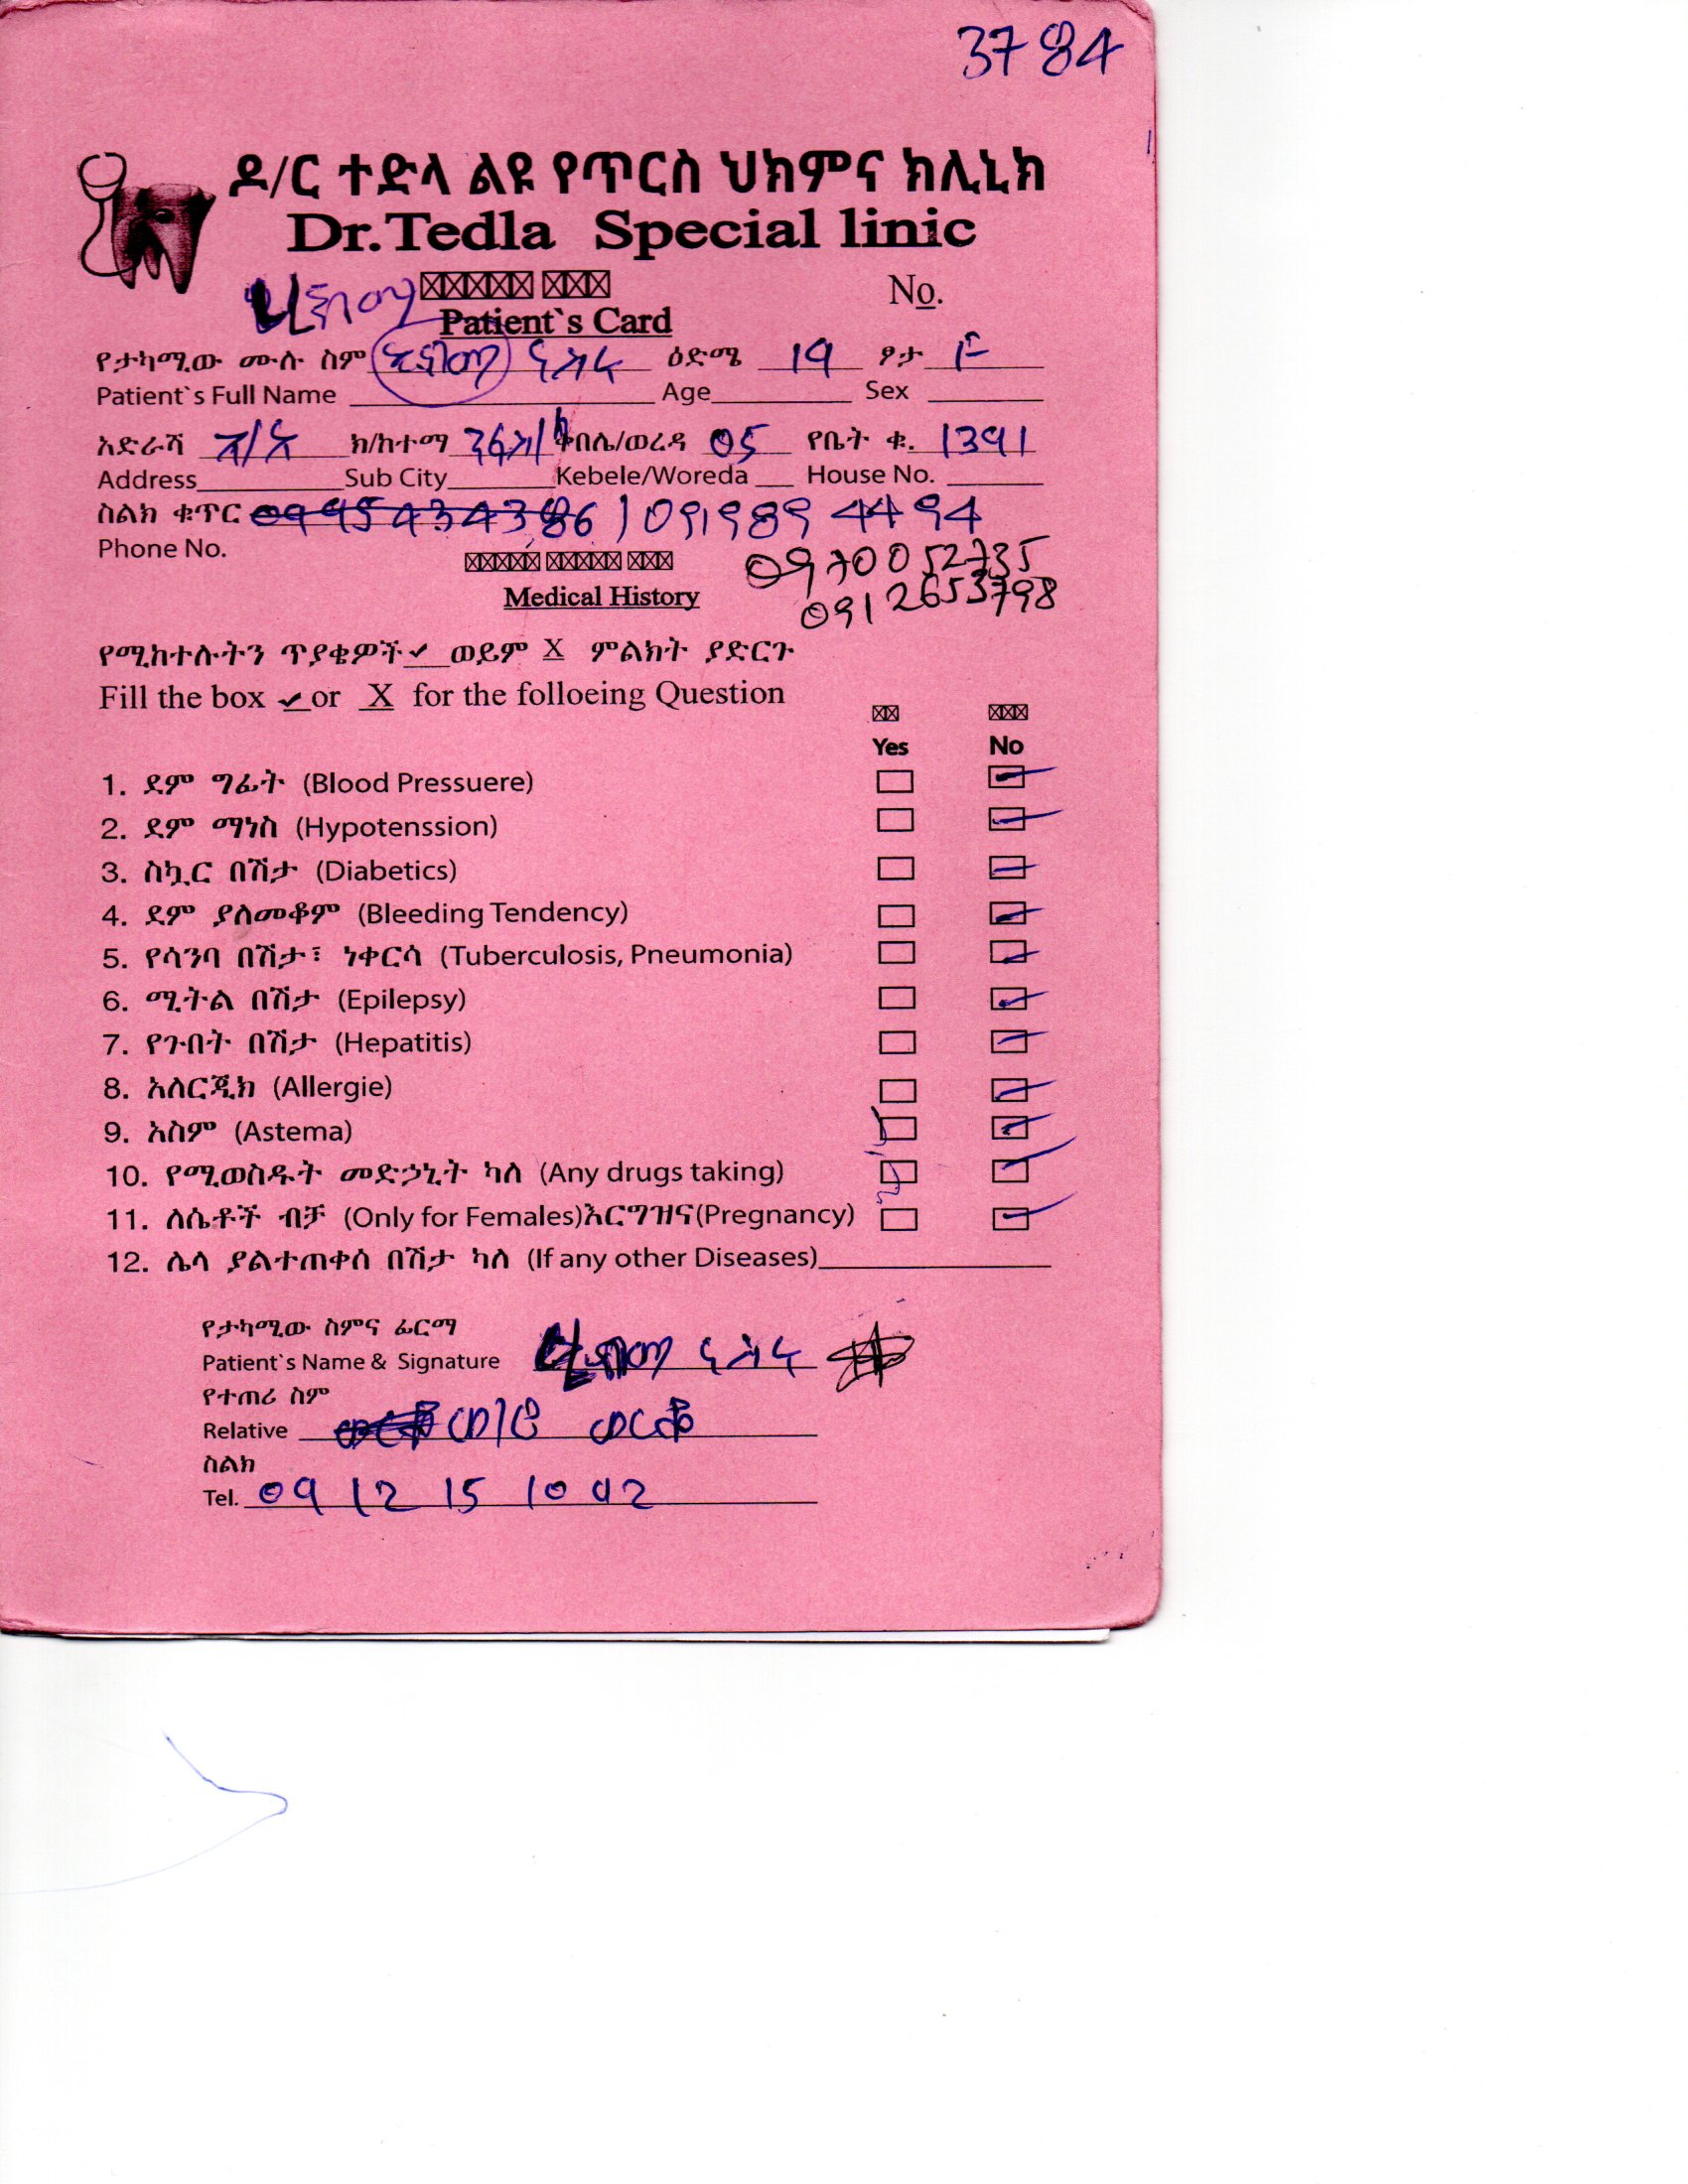 3784
ዶ/ር ተድላ ልዩ የጥርስ ህክምና ክሊኒክ
Dr.Tedla Special linic
No.
Patient`s Card
የታካሚው ሙሉ ስም ዕድሜ 19 ፆታ F
Patient`s Full Name Age Sex
አድራሻ ክ/ከተማ ቀበሌ/ወረዳ 05 የቤት ቁ. 1391
Address Sub City Kebele/Woreda House No.
ስልክ ቁጥር 0995434386 / 0919894494
Phone No. 0970052735
0912653798
Medical History
የሚከተሉትን ጥያቄዎች ✓ ወይም X ምልክት ያድርጉ
Fill the box ✓ or X for the folloeing Question
Yes No
1. ደም ግፊት (Blood Pressuere)
2. ደም ማነስ (Hypotenssion)
3. ስኳር በሽታ (Diabetics)
4. ደም ያለመቆም (Bleeding Tendency)
5. የሳንባ በሽታ፣ ነቀርሳ (Tuberculosis, Pneumonia)
6. ሚትል በሽታ (Epilepsy)
7. የጉበት በሽታ (Hepatitis)
8. አለርጂክ (Allergie)
9. አስም (Astema)
10. የሚወስዱት መድኃኒት ካለ (Any drugs taking)
11. ለሴቶች ብቻ (Only for Females)እርግዝና(Pregnancy)
12. ሌላ ያልተጠቀሰ በሽታ ካለ (If any other Diseases)
የታካሚው ስምና ፊርማ
Patient`s Name & Signature
የተጠሪ ስም
Relative ወርቁ
ስልክ
Tel. 09 12 15 10 92